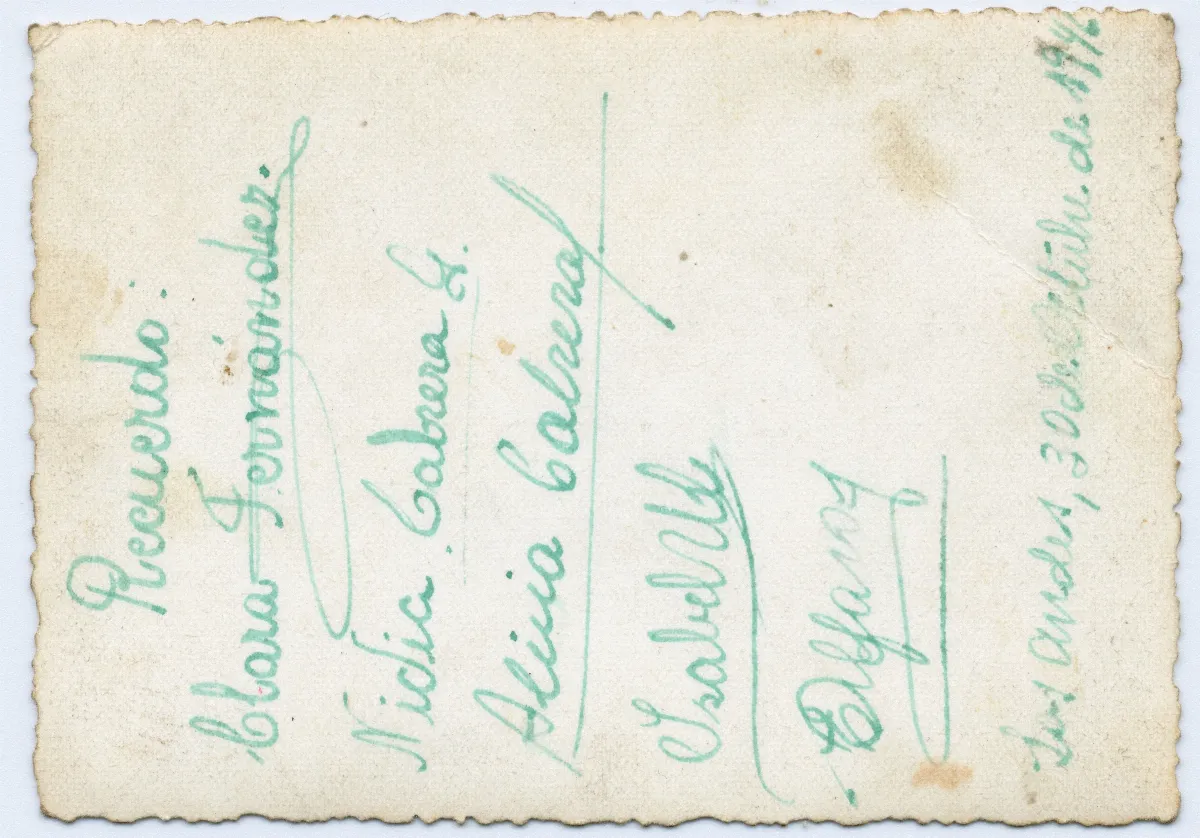 Recuerdo:
Clara Fernández.
Nidia Cabrera G.
Alicia Cabrera
Isabel
Los Andes, 30 de Octubre de 1946